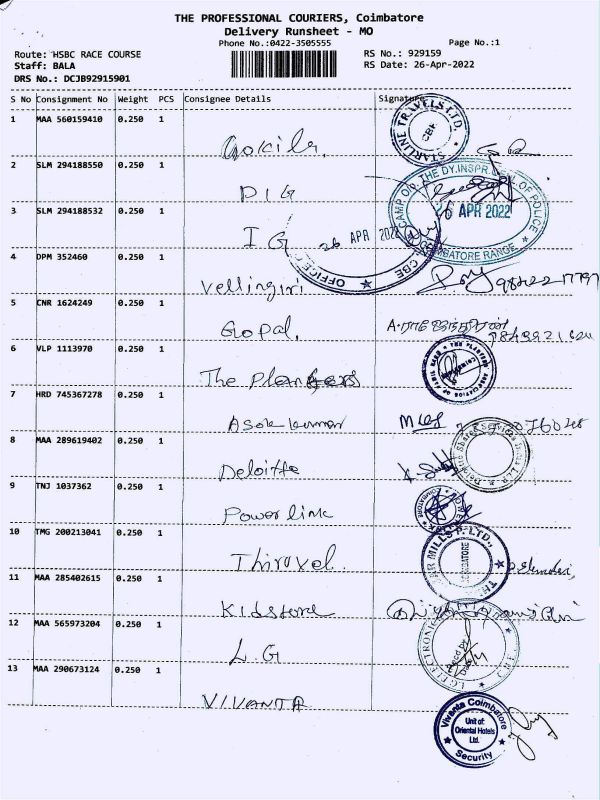 THE PROFESSIONAL COURIERS, Coimbatore
Delivery Runsheet - MO
Phone No.:0422-3505555
Page No.:1
Route: HSBC RACE COURSE
RS No.: 929159
Staff: BALA
RS Date: 26-Apr-2022
DRS No.: DCJB92915901
S No Consignment No Weight PCS Consignee Details Signature
1 MAA 560159410 0.250 1
STARLINE TRAVELS LTD. CBE
Gokila.
2 SLM 294188550 0.250 1
CAMP O/o. THE DY.INSPR. OF POLICE
26 APR 2022
COIMBATORE RANGE
DIG
3 SLM 294188532 0.250 1
IG
26 APR 2022
OFFICE CBE
4 DPM 352460 0.250 1
Vellingiri
5 CNR 1624249 0.250 1
Gopal.
6 VLP 1113970 0.250 1
The Planters
THE PLANTERS ASSOCIATION OF TAMIL NADU
7 HRD 745367278 0.250 1
Asokkumar
8 MAA 289619402 0.250 1
Deloitte
9 TNJ 1037362 0.250 1
Powerlink
10 TMG 200213041 0.250 1
MILLS P. LTD.,
COIMBATORE
Thiruvel.
11 MAA 285402615 0.250 1
Kidstore
12 MAA 565973204 0.250 1
LG ELECTRONICS
L.G
13 MAA 290673124 0.250 1
VIVANTA
Vivanta Coimbatore
Unit of:
Oriental Hotels
Ltd.
Security